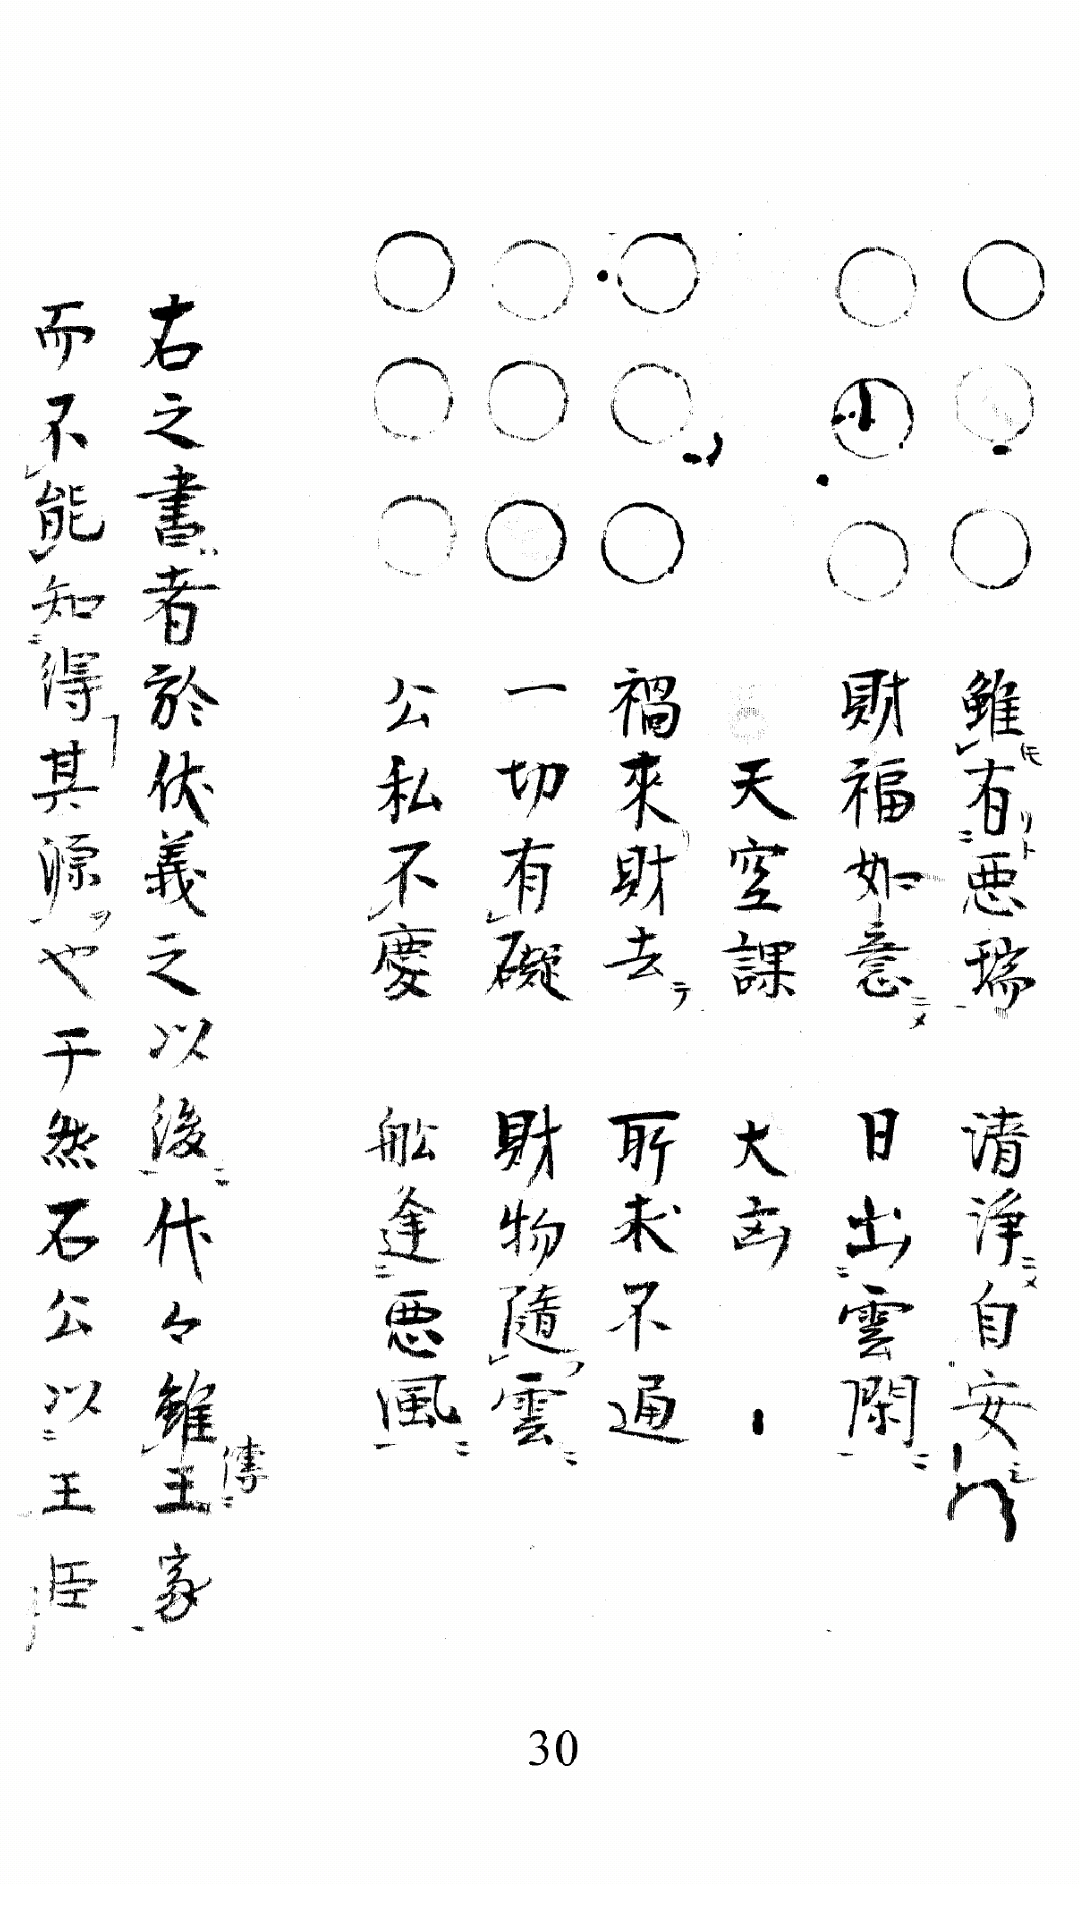 雖有悪瑞 清浄自安
財福如意 日出雲閑
天空課 大凶
禍来財去 所求不通
一切有礙 財物隨雲
公私不慶 舩逢悪風
右之書者於伏義之以後代々雖傳王家
而不能知得其源也于然石公以王臣
30